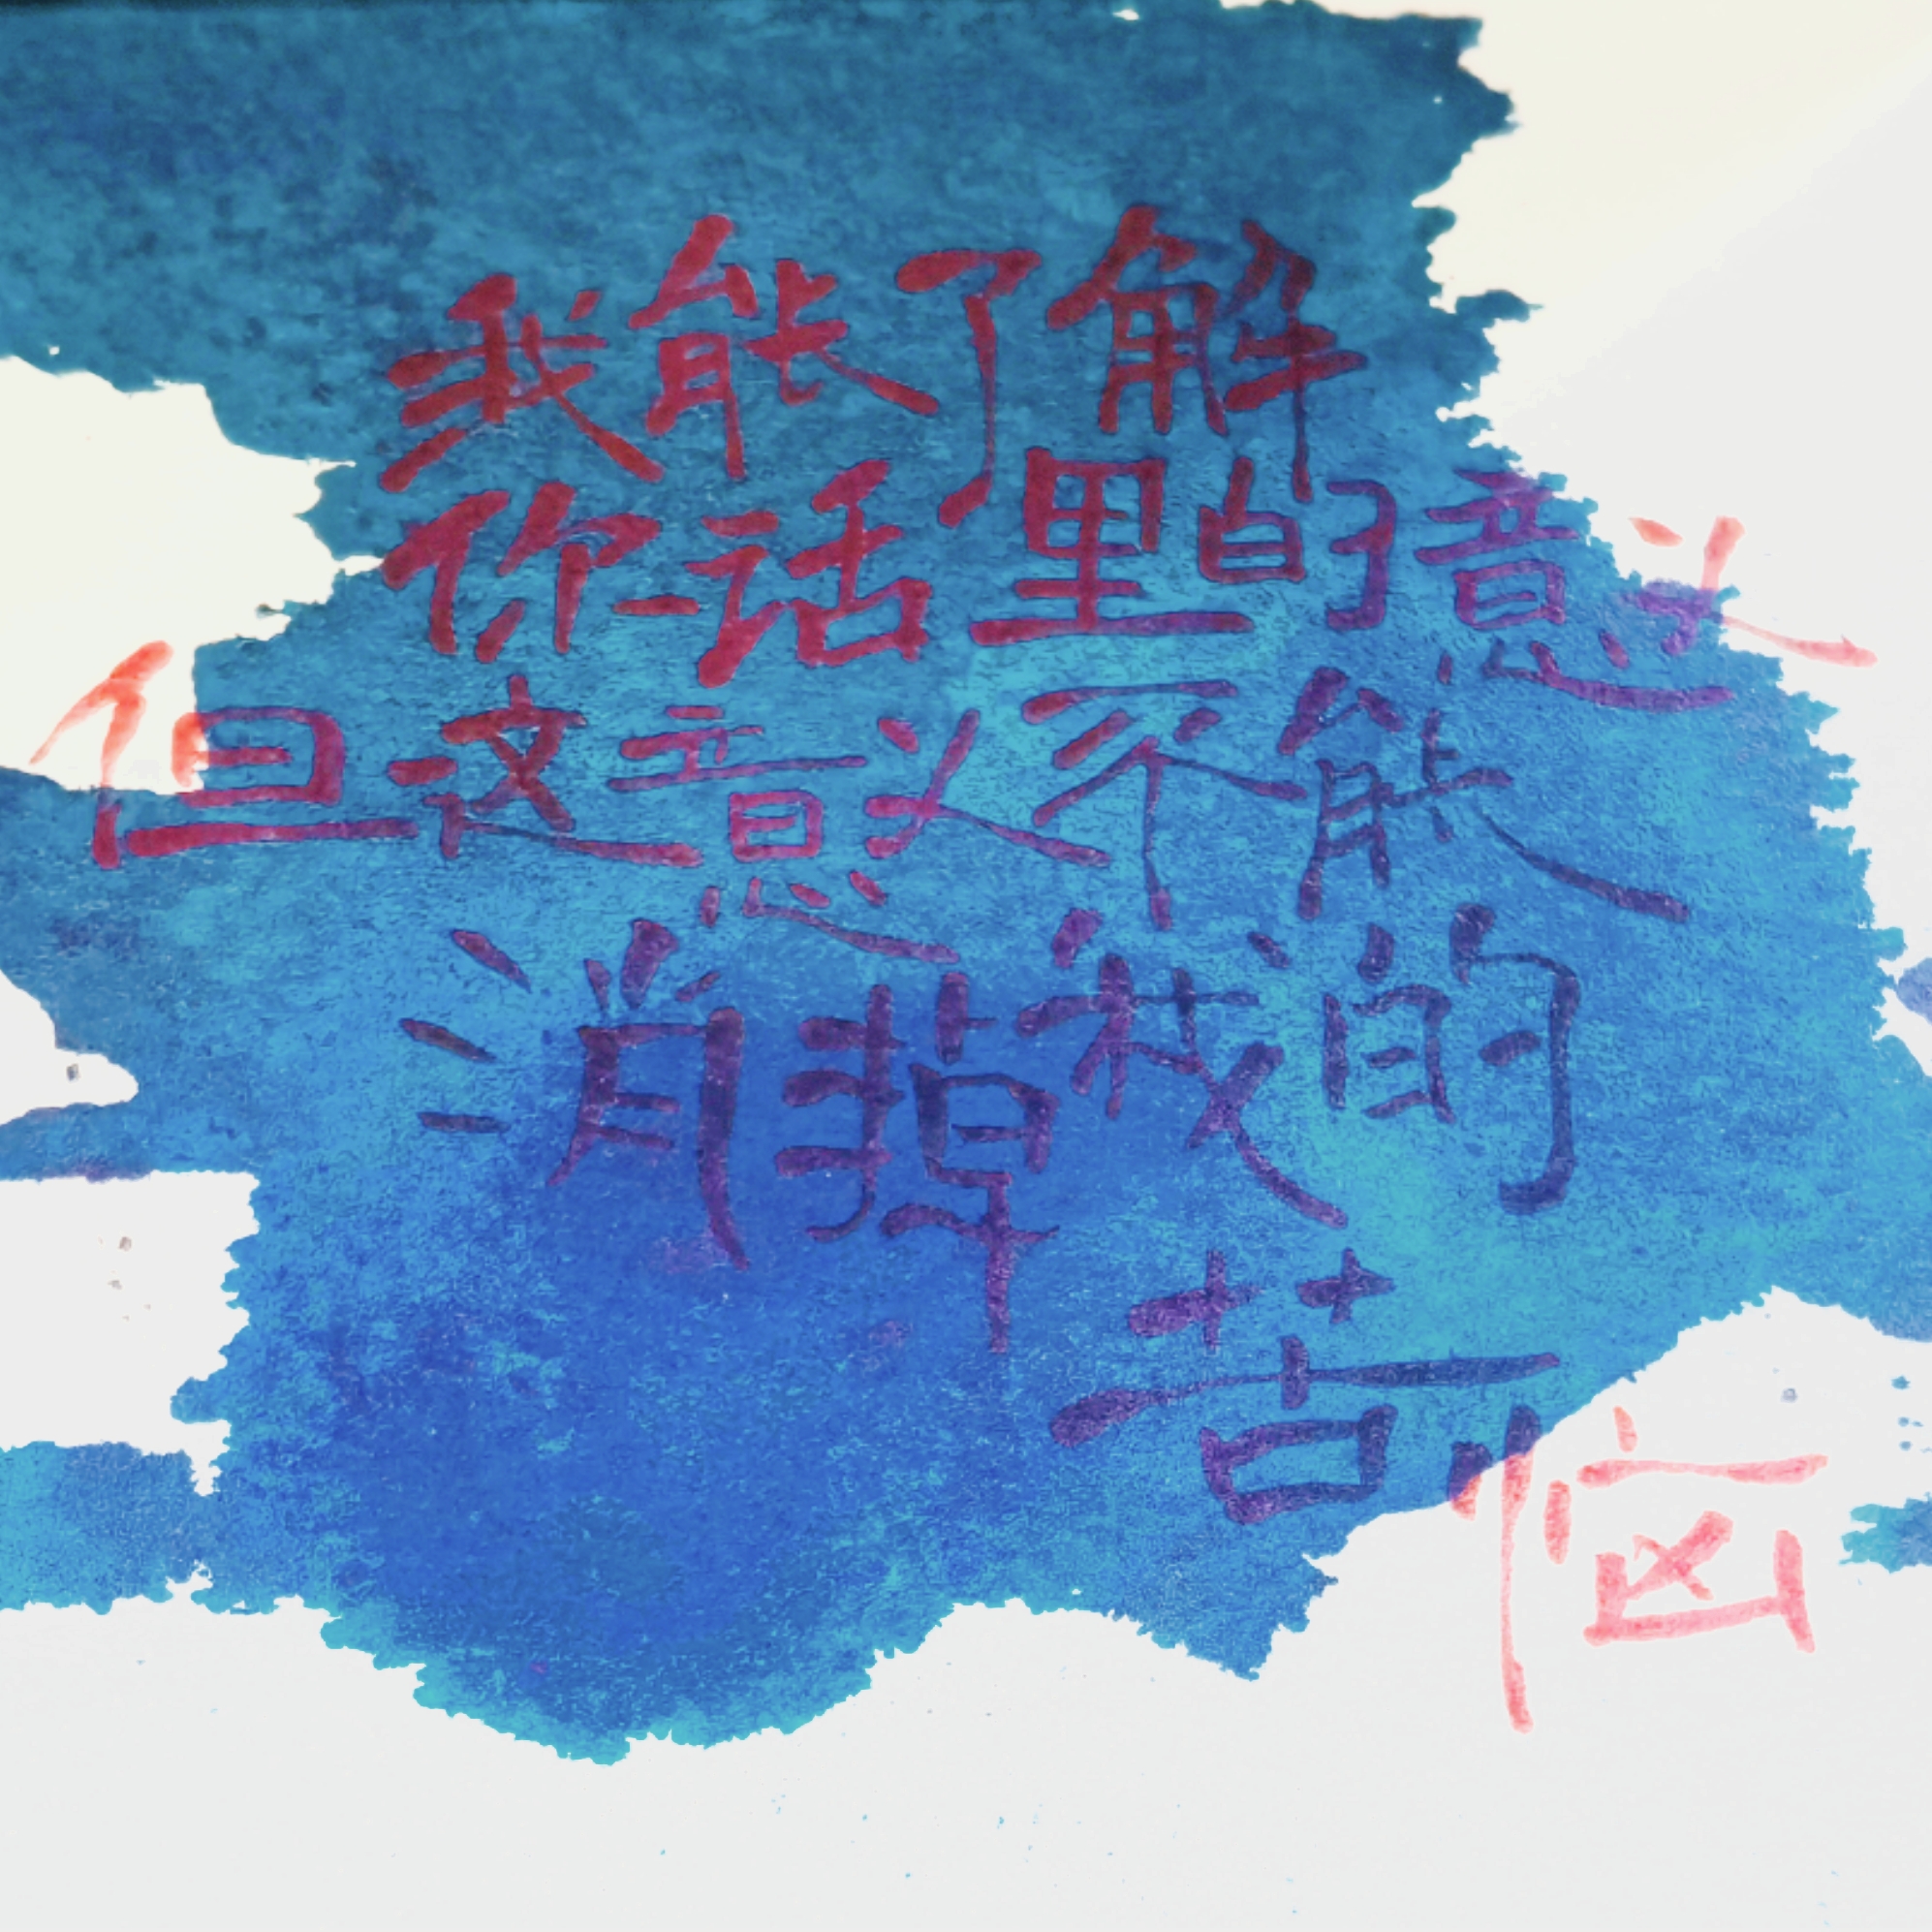 我能了解
你话里的意义
但这意义不能
消掉我的
苦恼